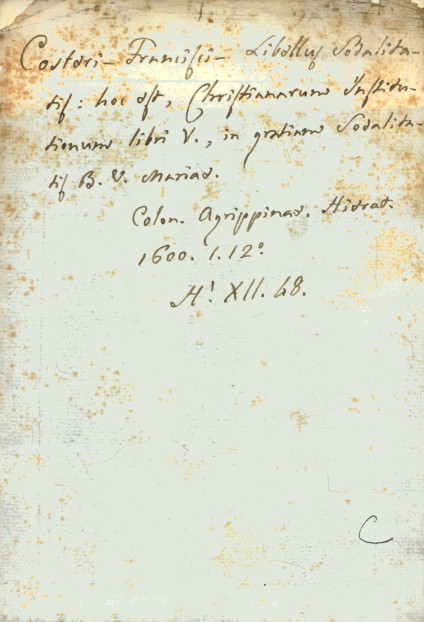 Costeri - Francisci - Libellus Sodalita-
tis: hoc est, Christianarum Institu-
tionum libri V., in gratiam Sodalita-
tis B. V. Mariae.
Colon. Agrippinae. Hierat.
1600. 1. 12º
H! XII. 48.
C